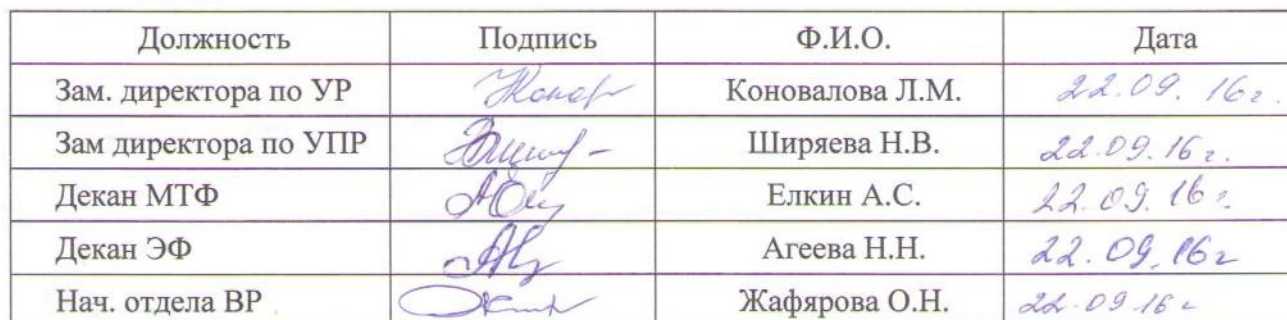 Должность Подпись Ф.И.О. Дата
Зам. директора по УР Коновалова Л.М. 22.09.16г.
Зам директора по УПР Ширяева Н.В. 22.09.16г.
Декан МТФ Елкин А.С. 22.09.16г.
Декан ЭФ Агеева Н.Н. 22.09.16г
Нач. отдела ВР Жафярова О.Н. 22.09.16г